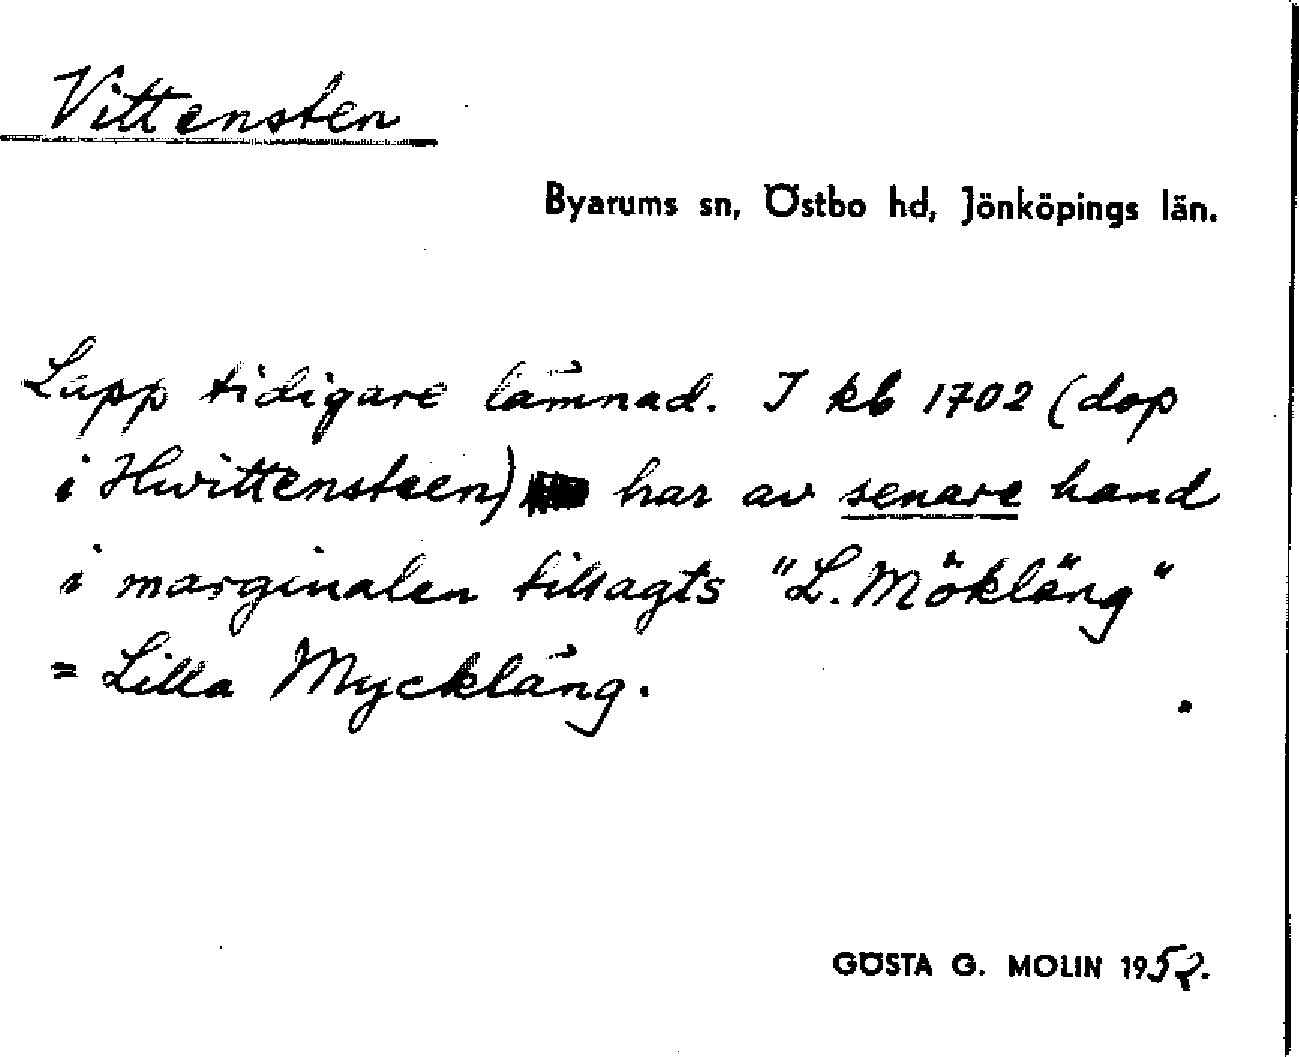 Vittensten
Byarums sn, Östbo hd, Jönköpings län.
Lapp tidigare lämnad. I kb 1702 (dop
i Hwittensteen) har av senare hand
i marginalen tillagts "L. Mökläng"
= Lilla Myckläng.
GÖSTA G. MOLIN 1952.